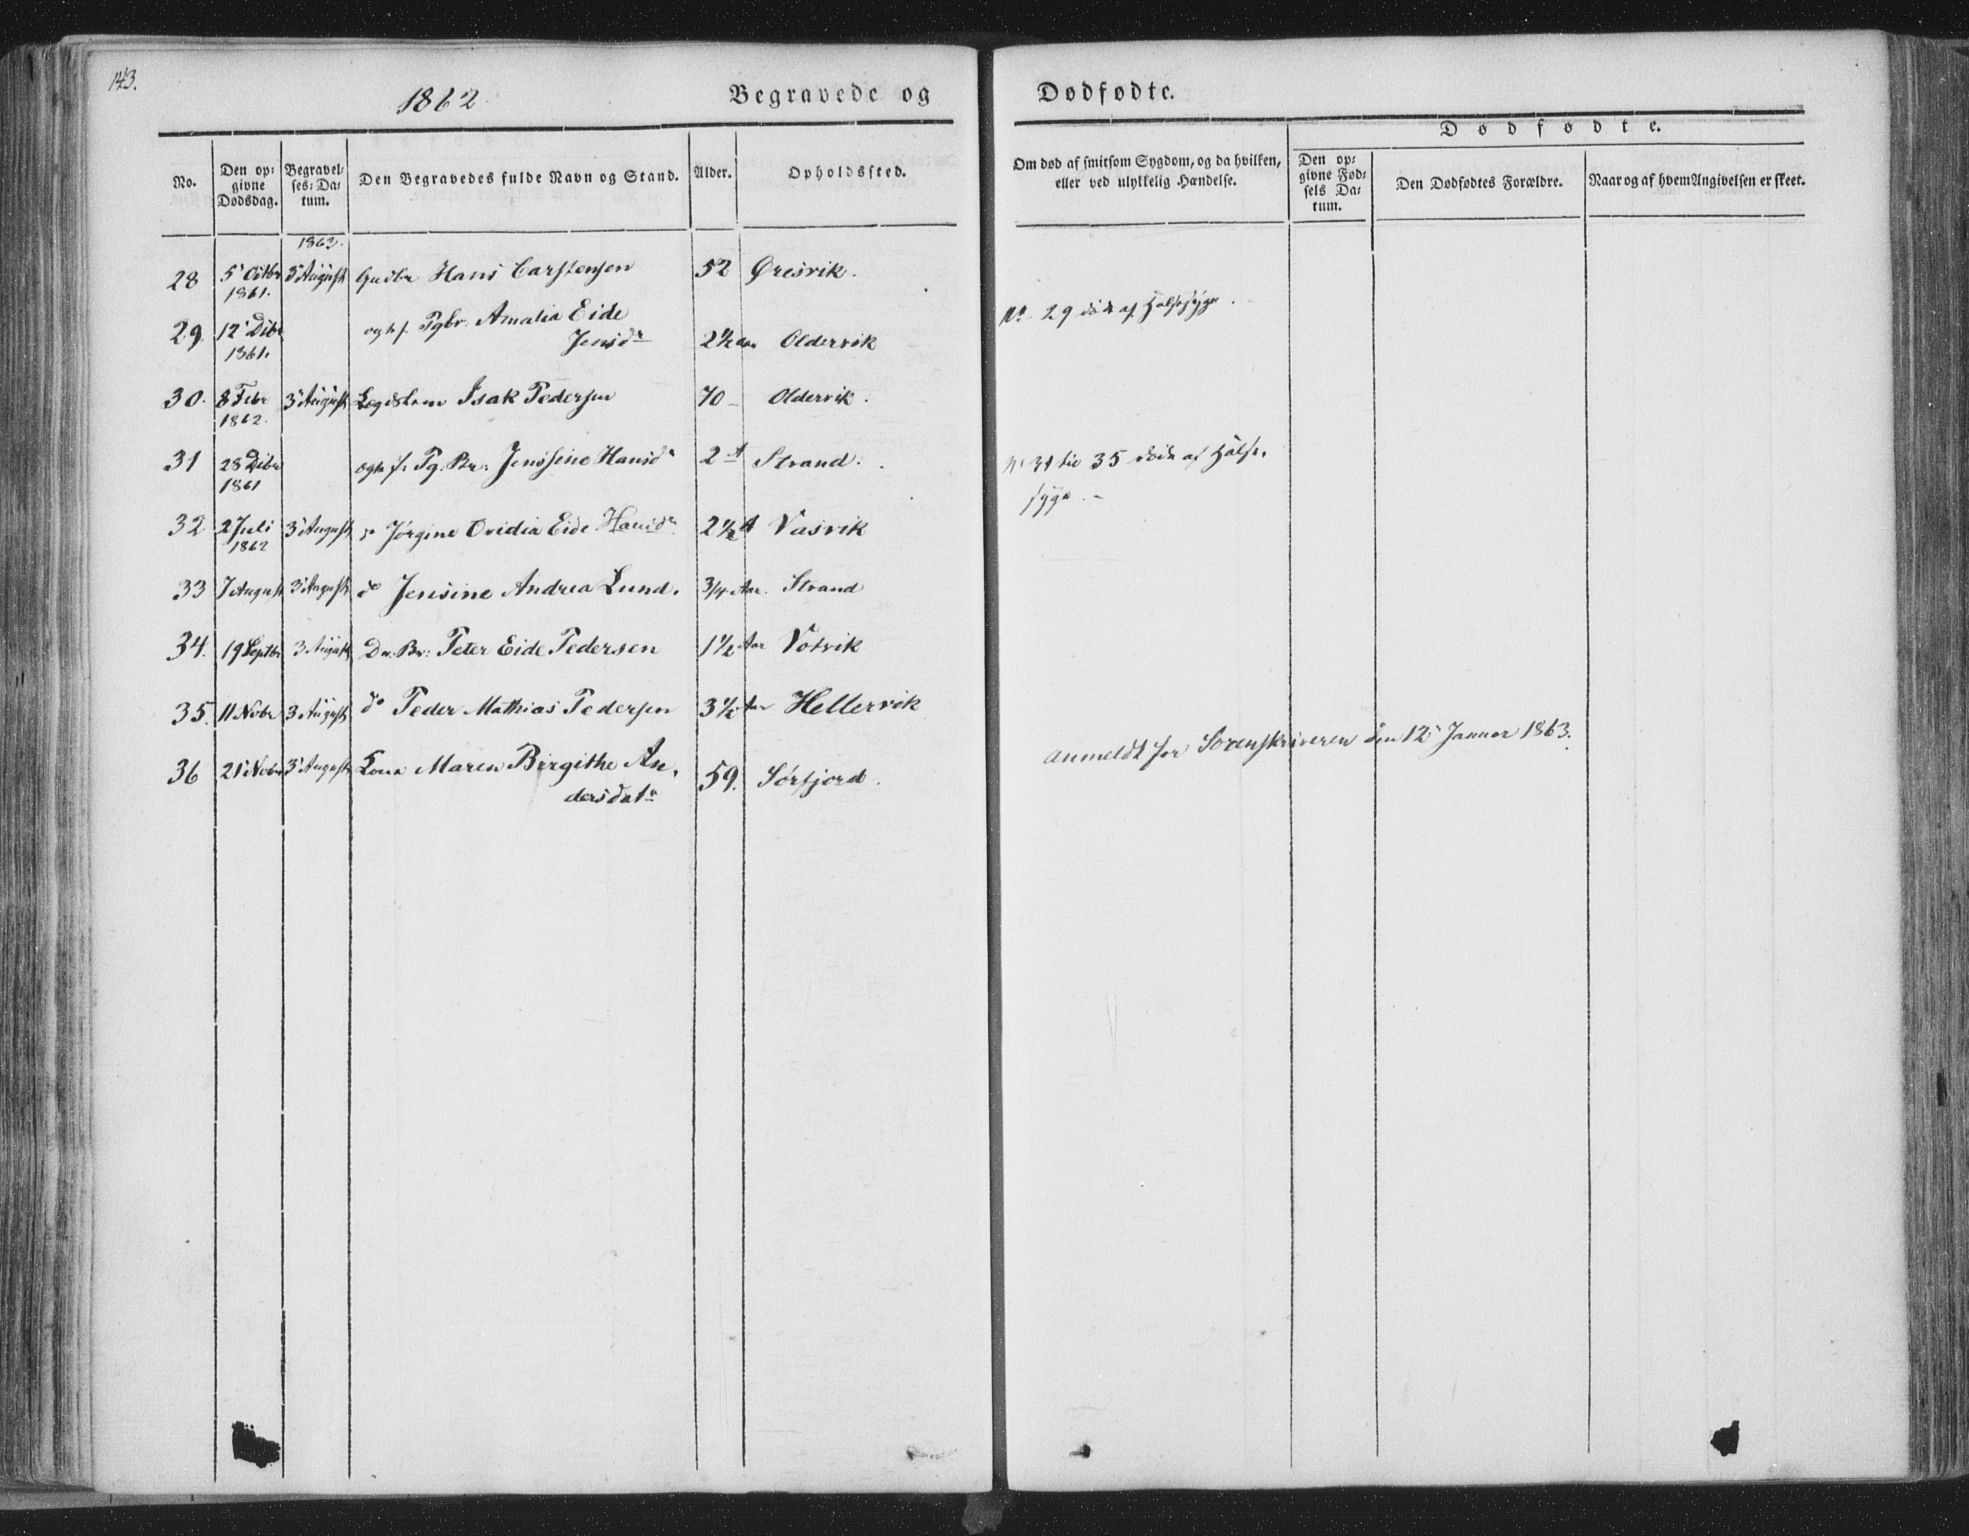 143.
1862
Begravede og
Dødfødte.
No.
Den opgivne Dødsdag.
Begravelses-Datum.
Den Begravedes fulde Navn og Stand.
Alder.
Opholdssted.
Om død af smitsom Sygdom, og da hvilken, eller ved ulykkelig Hændelse.
Dødfødte.
Den opgivne Fødsels Datum.
Den Dødfødtes Forældre.
Naar og af hvem Angivelsen er skeet.
1863.
28 5' Octbr 1861. 3' August Hans Carstensen 52 Øresvik.
29 12' Dcbr 1861. Pgbr. Amalia Eide
Jensdr 2½ Aar Oldervik
No 29 død af Halssyge.
30. 8 Febr 1862. 3' August Isak Pedersen 70 Oldervik.
31 28 Dcbr 1861 Pg. Br. Jenssine Hansdr 2 A Strand.
No 31 til 35 døde af Halssyge.
32 2 Juli 1862 3' August Jørgine Ovidia Eide Hansdr 2½ A Vasvik
33 7 August 3' August do Jensine Andrea Lund. 3/4 Aar. Strand
34. 19 Septbr 3 August Dr. Br: Peter Eide Pedersen 1½ Aar Votvik
35. 11 Novbr 3 August do Peder Mathias Pedersen 3½ Aar Hellervik
36 21' Novbr 3' August Kone Maren Birgithe An-
dersdatr 59. Sørfjord.
anmeldt for Sorenskriveren den 12' Januar 1863.